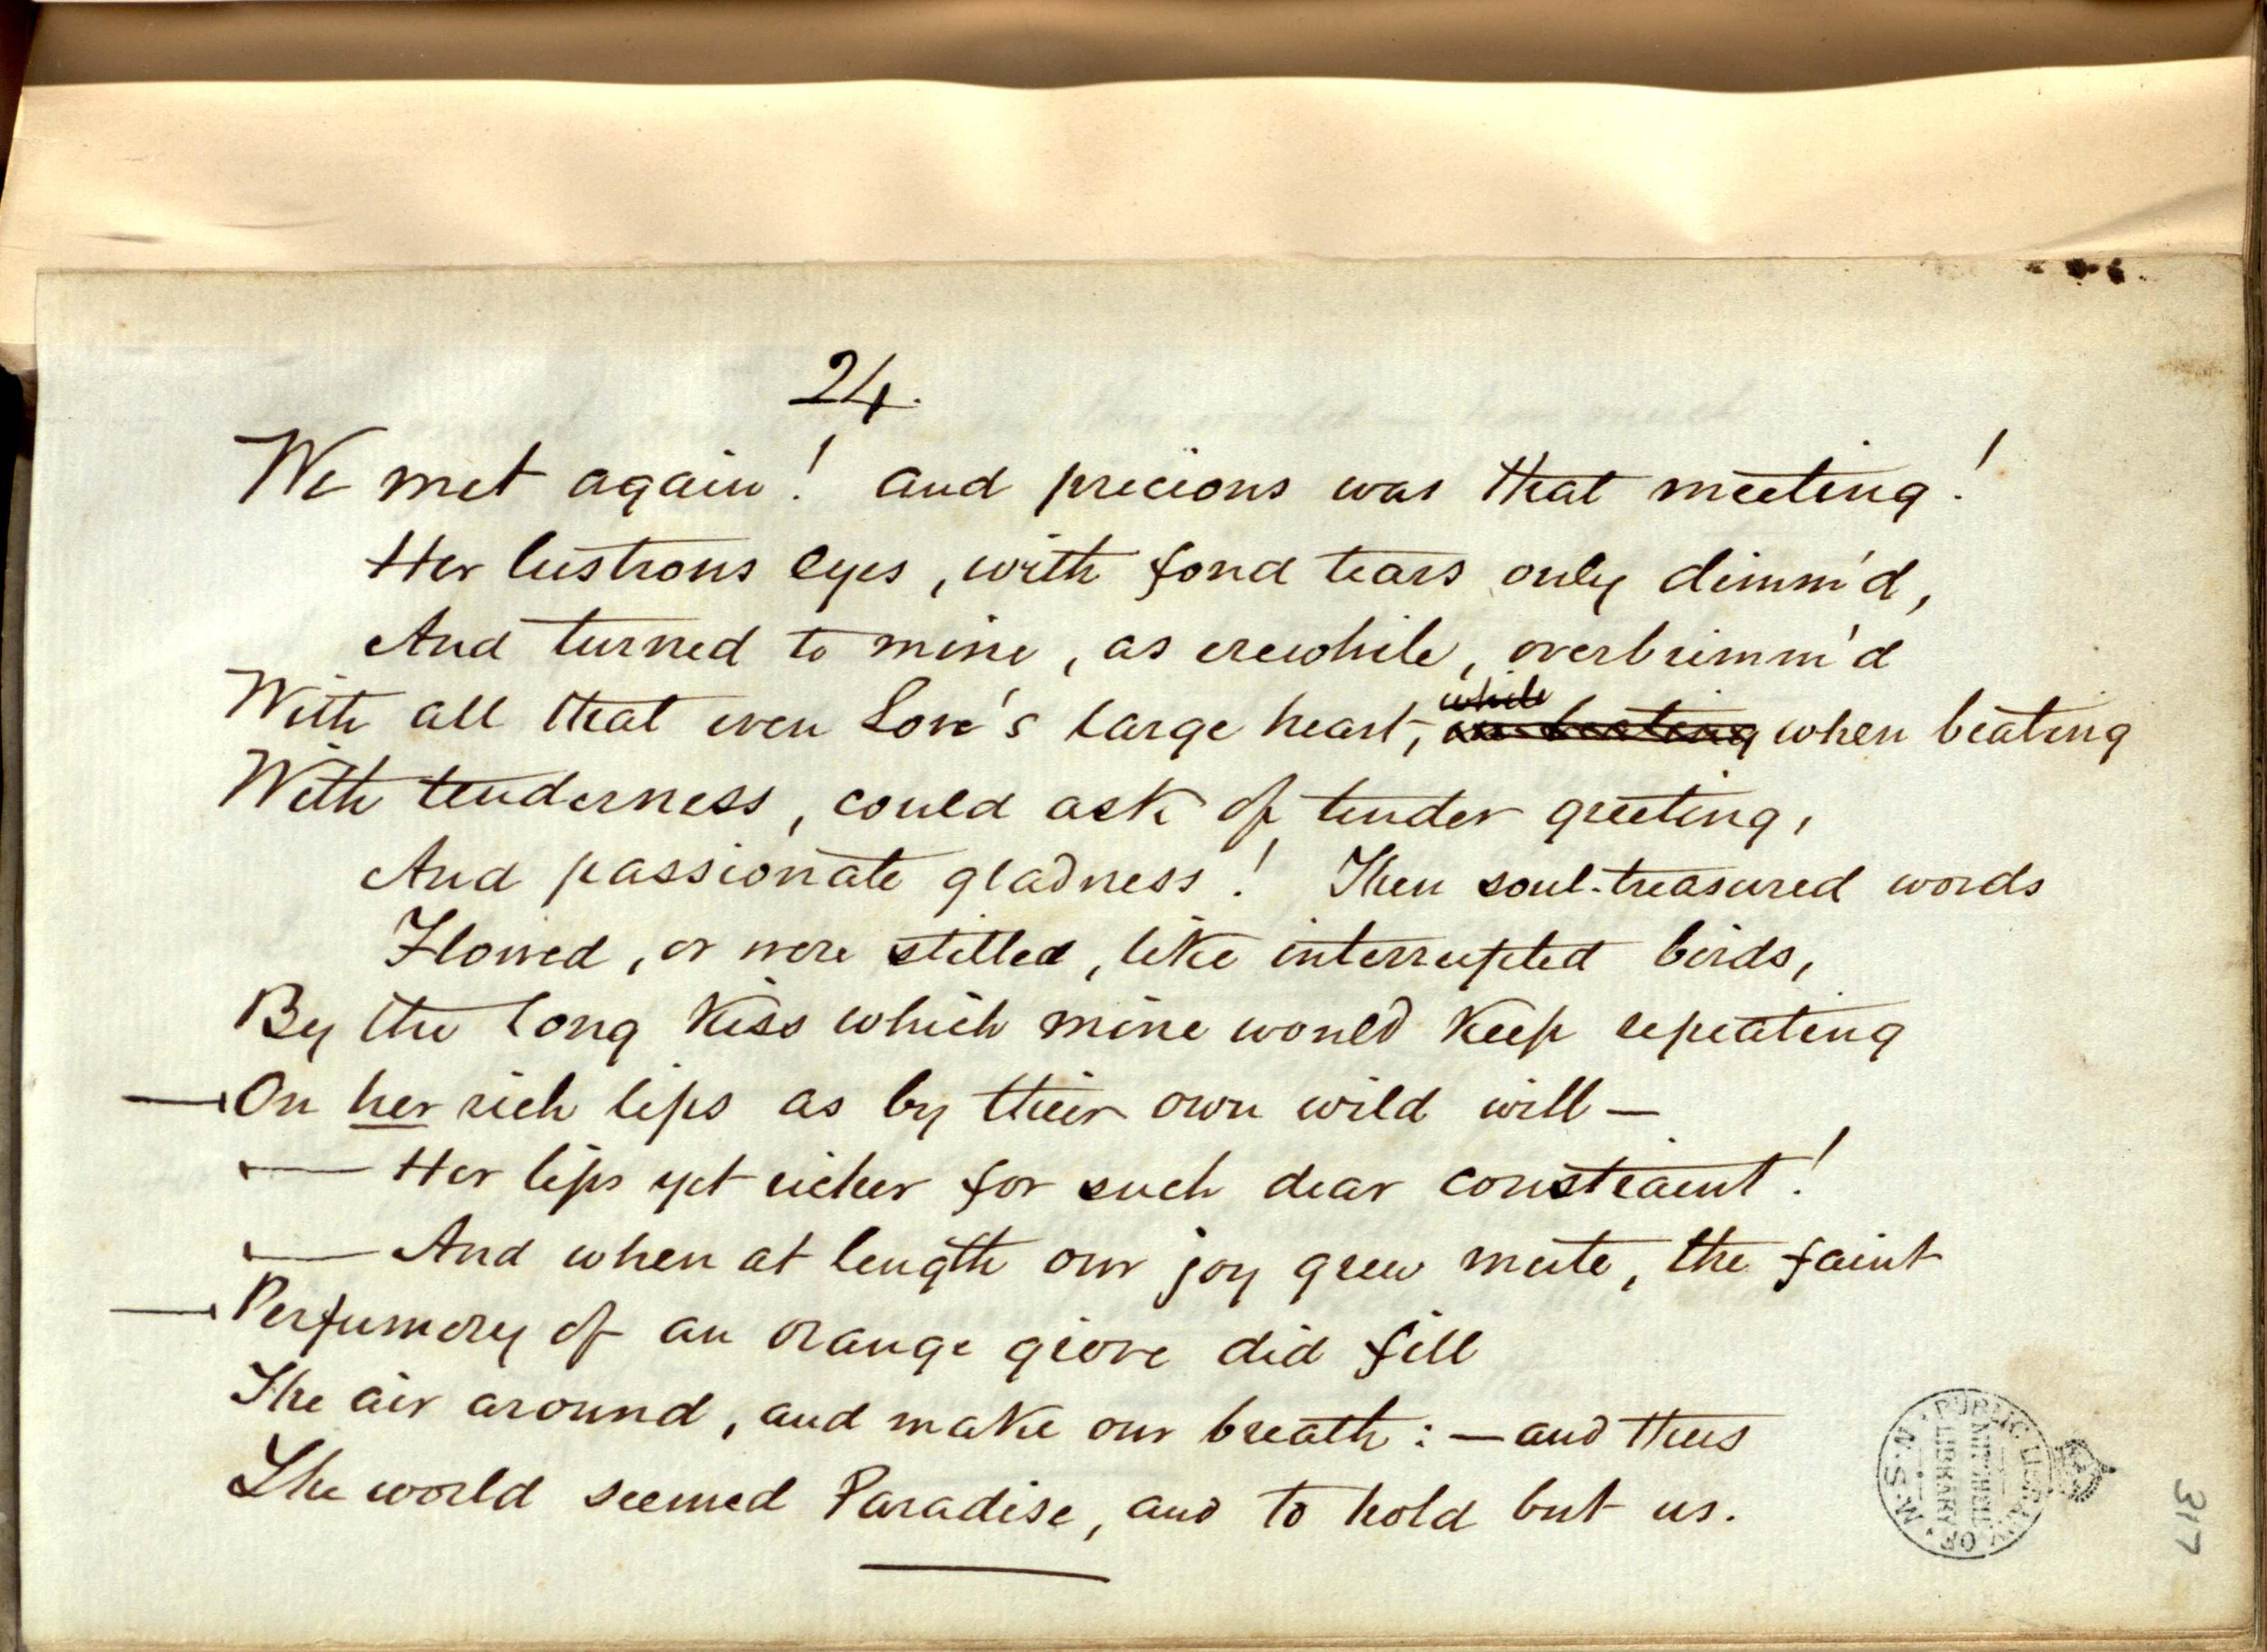 24.
We met again! and precious was that meeting!
Her lustrous eyes, with fond tears only dimm'd,
And turned to mine, as erewhile, overbrimm'd
With all that even Love's large heart, while when beating
With tenderness, could ask of tender greeting,
And passionate gladness! Then soul-treasured words
Flowed, or were stilled, like interrupted birds,
By the long kiss which mine would keep repeating
—On her rich lips as by their own wild will—
— Her lips yet richer for such dear constraint!
— And when at length our joy grew mute, the faint
—Perfumery of an orange grove did fill
The air around, and make our breath:—and thus
The world seemed Paradise, and to hold but us.
PUBLIC LIBRARY OF N.S.W.
MITCHELL LIBRARY
317